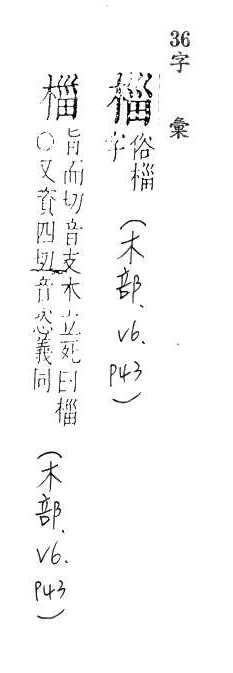 36字彙
椔
俗椔
字
(木部.v6.p43)
椔
旨而切音支木立死曰椔
○又資四切音恣義同
(木部.v6.p43)